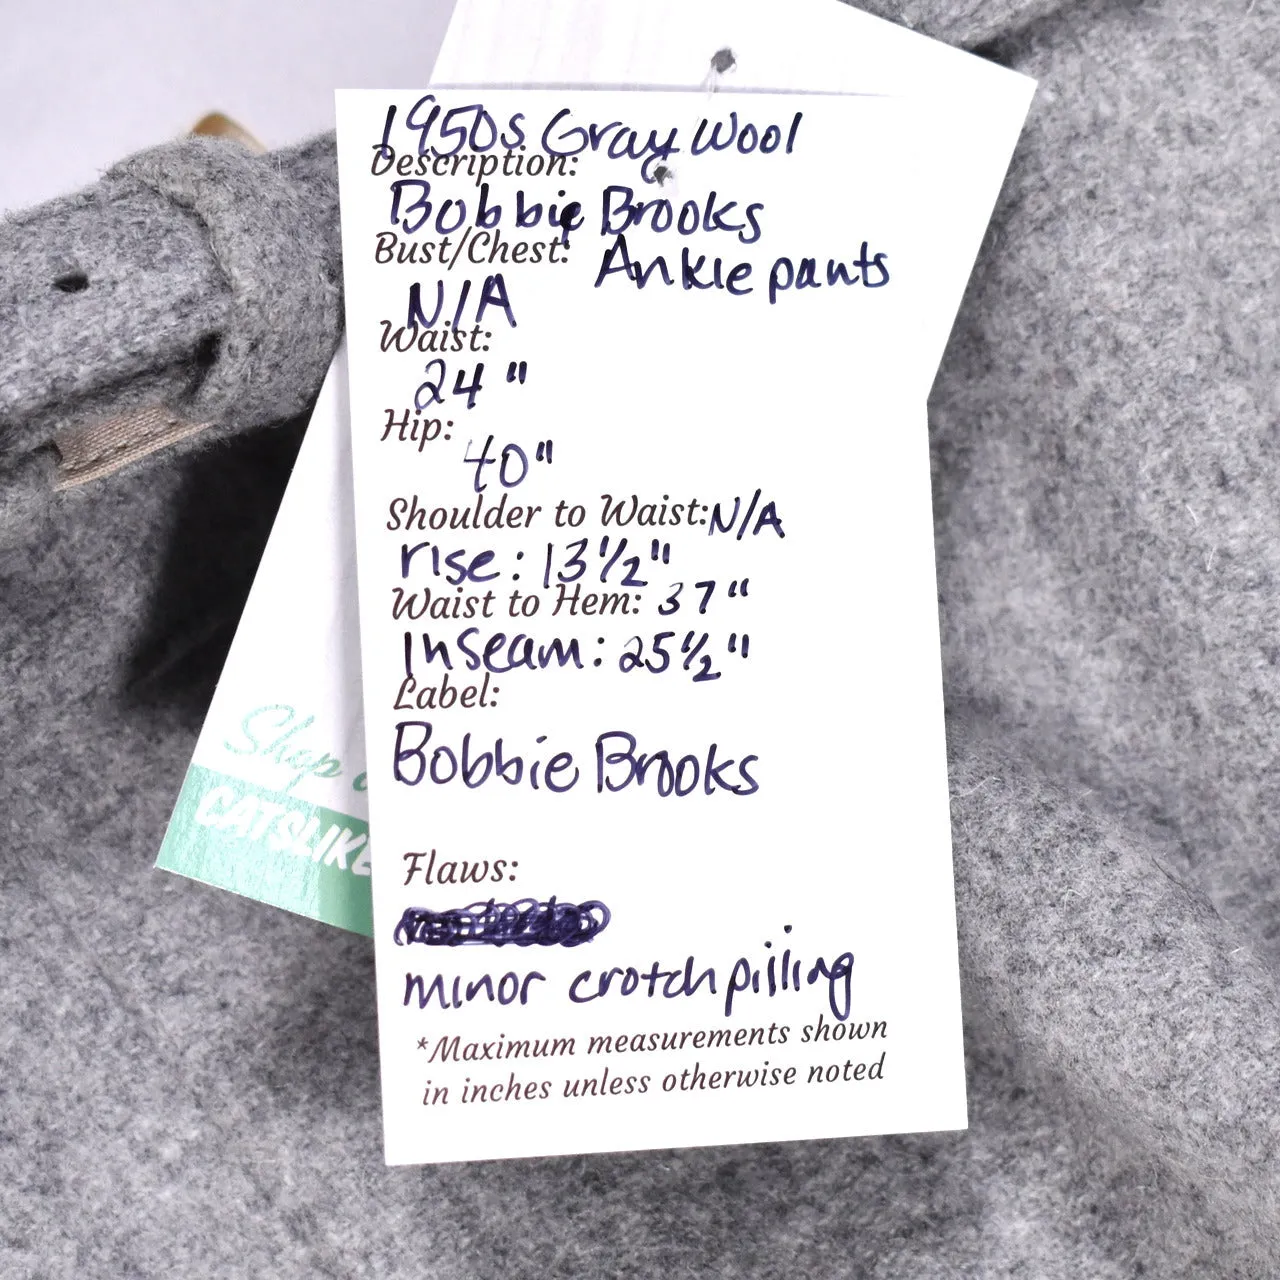 1950s Gray Wool
Description:
Bobbie Brooks
Bust/Chest: Ankle pants
N/A
Waist:
24"
Hip:
40"
Shoulder to Waist: N/A
rise: 13 1/2"
Waist to Hem: 37"
Inseam: 25 1/2"
Label:
Bobbie Brooks
Shop
CATSLIKE
Flaws:
minor crotch pilling
*Maximum measurements shown
in inches unless otherwise noted